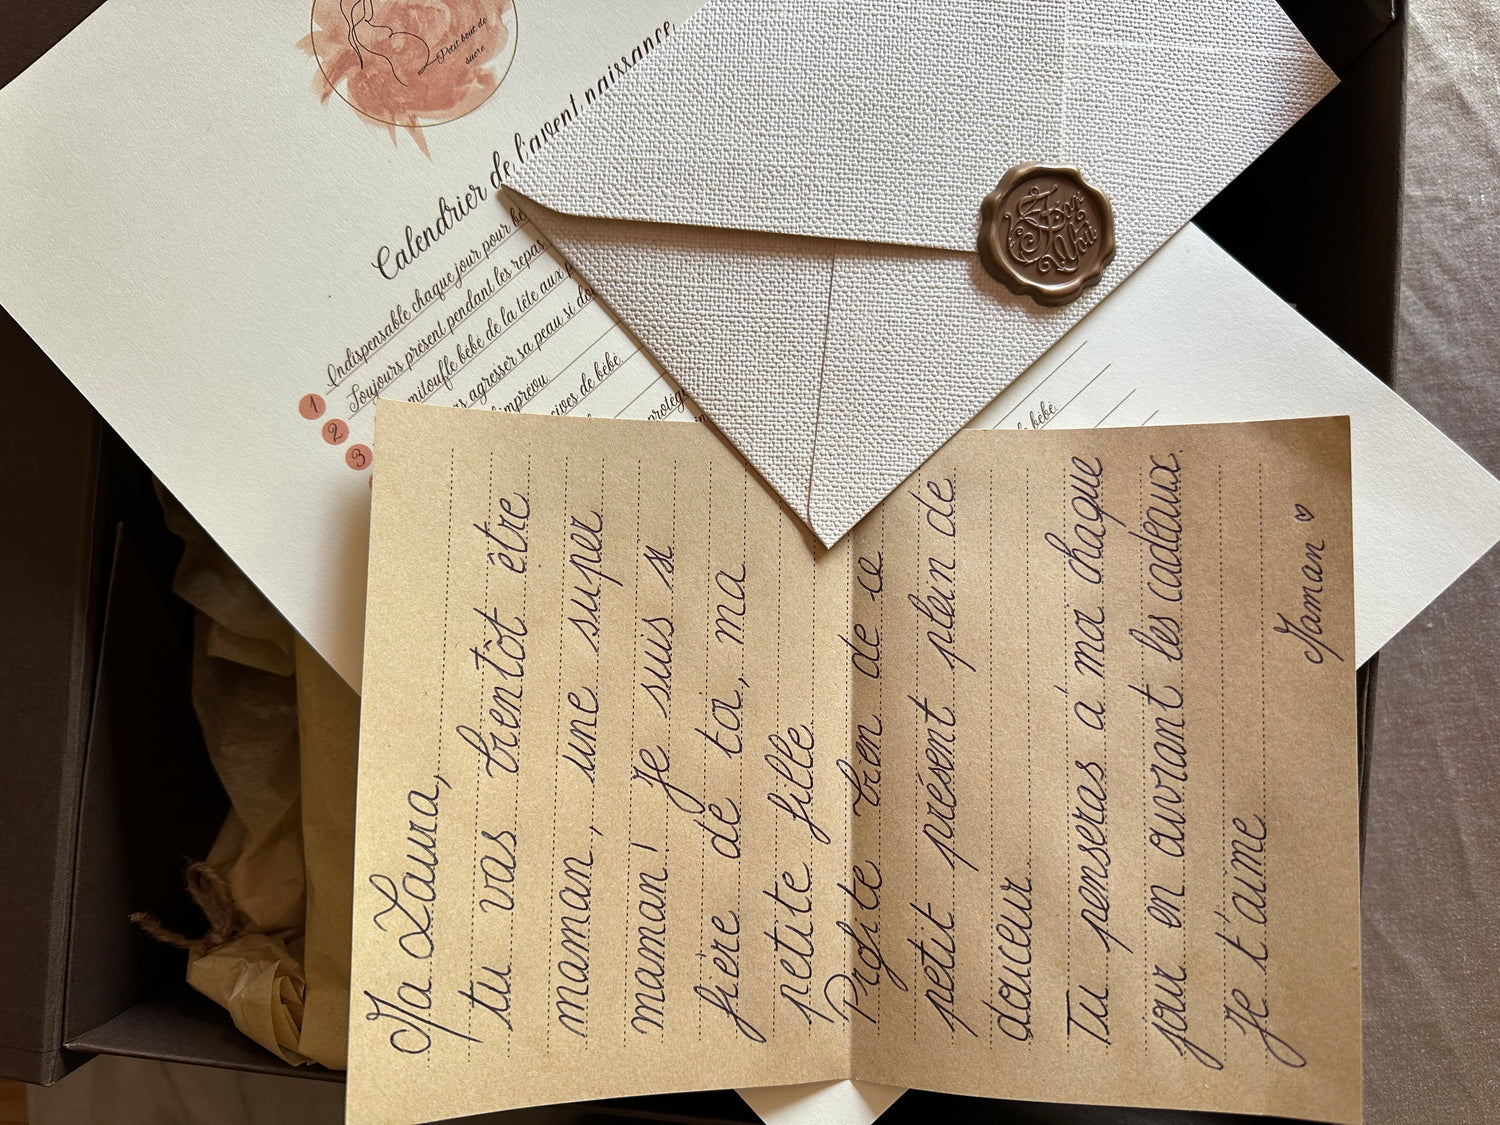 Petit bout de
sucre
Calendrier de l'avent naissance
1 Indispensable chaque jour pour bé
2 Toujours présent pendant les repas
3 mitoufle bébé de la tête aux p
ns agresser sa peau si do
d'imprévu
cives de bébé
protége
bébé
For
You
Ma Laura,
tu vas bientôt être
maman, une super
maman! Je suis si
fière de toi, ma
petite fille.
Profite bien de ce
petit présent plein de
douceur.
Tu penseras à moi chaque
jour en ouvrant les cadeaux.
Je t'aime
Maman ♡